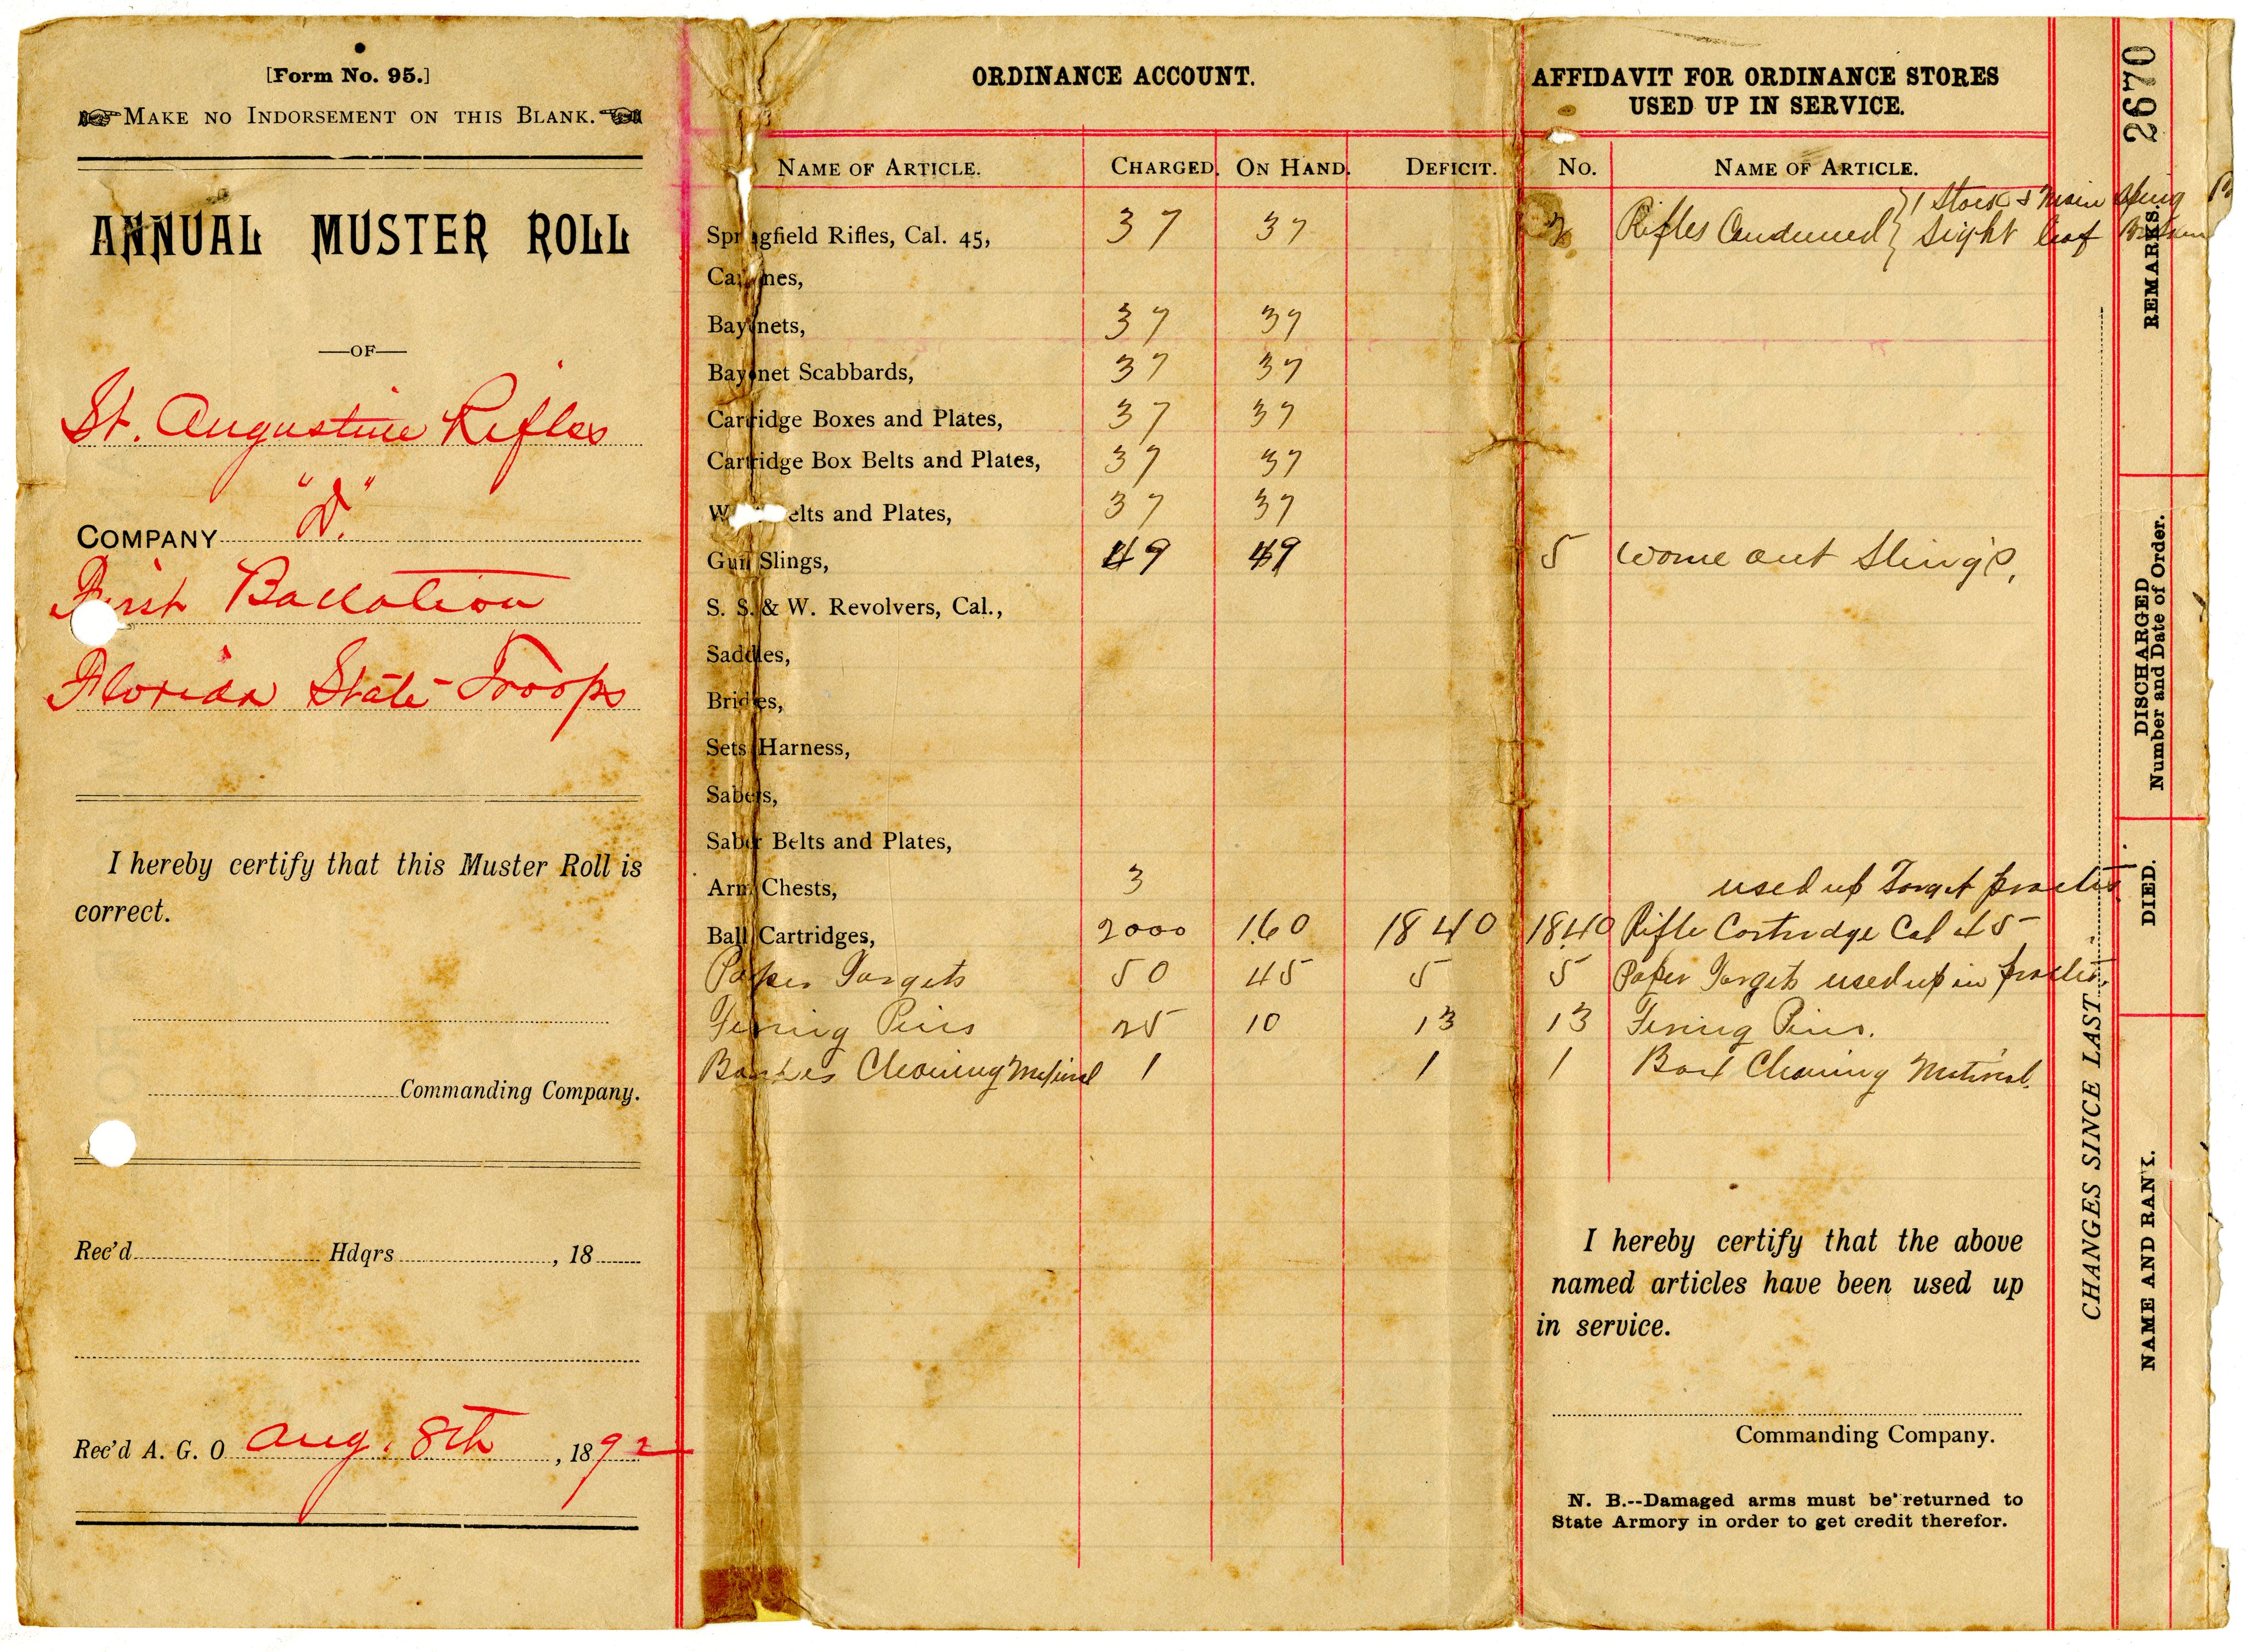 [Form No. 95.]
MAKE NO INDORSEMENT ON THIS BLANK.
ANNUAL MUSTER ROLL
—OF—
St. Augustine Rifles
COMPANY "D."
First Battalion
Florida State Troops
I hereby certify that this Muster Roll is
correct.
Commanding Company.
Rec'd Hdqrs , 18
Rec'd A. G. O Aug. 8th , 1892
ORDINANCE ACCOUNT.
NAME OF ARTICLE. CHARGED. ON HAND. DEFICIT.
Springfield Rifles, Cal. 45, 37 37
Carbines,
Bayonets, 37 37
Bayonet Scabbards, 37 37
Cartridge Boxes and Plates, 37 37
Cartridge Box Belts and Plates, 37 37
W elts and Plates, 37 37
Gun Slings, 49 49
S. S. & W. Revolvers, Cal.,
Saddles,
Bridles,
Sets Harness,
Sabers,
Saber Belts and Plates,
Arm Chests, 3
Ball Cartridges, 2000 160 1840
Paper Targets 50 45 5
Firing Pins 25 10 13
Cleaning Material 1 1
AFFIDAVIT FOR ORDINANCE STORES
USED UP IN SERVICE.
No. NAME OF ARTICLE.
1 Stock & Main Spring
2 Rifles Condemed Sight leaf
5 worne out Sling's,
used up Target practis
1840 Rifle Cartridge Cal 45
5 Paper Targets used up in practis.
13 Firing Pins.
1 Box Cleaning Material.
I hereby certify that the above
named articles have been used up
in service.
Commanding Company.
N. B.--Damaged arms must be returned to
State Armory in order to get credit therefor.
CHANGES SINCE LAST
2670
REMARKS.
DISCHARGED
Number and Date of Order.
DIED.
NAME AND RANK.